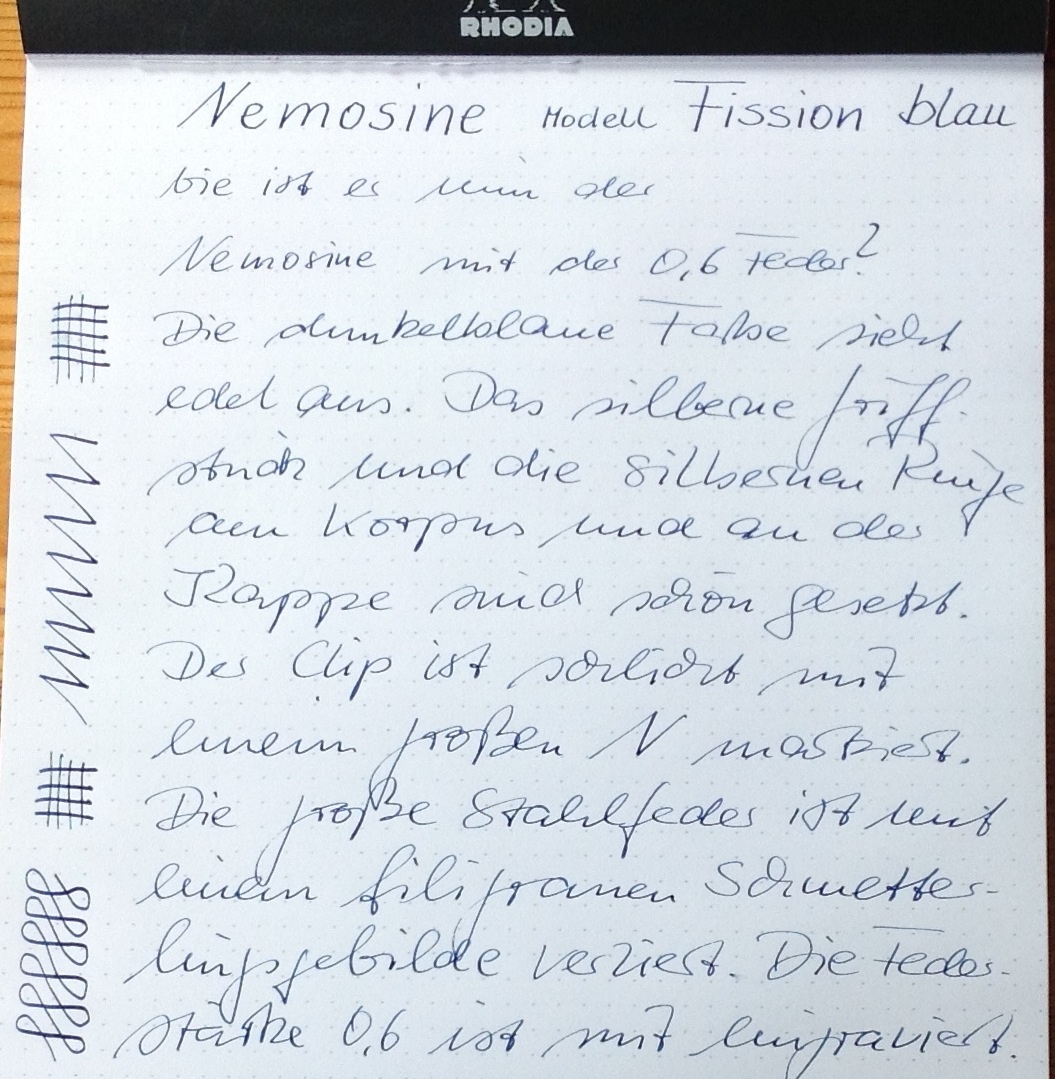 RHODIA
Nemosine Modell Fission blau
Wie ist es nun der
Nemosine mit der 0,6 Feder?
Die dunkelblaue Farbe sieht
edel aus. Das silberne Griff-
stück und die silbernen Ringe
am Korpus und an der
Kappe sind schön gesetzt.
Der Clip ist schlicht mit
einem großen N markiert.
Die große Stahlfeder ist mit
einem filigranen Schmetter-
lingsgebilde verziert. Die Feder-
stärke 0,6 ist mit eingraviert.